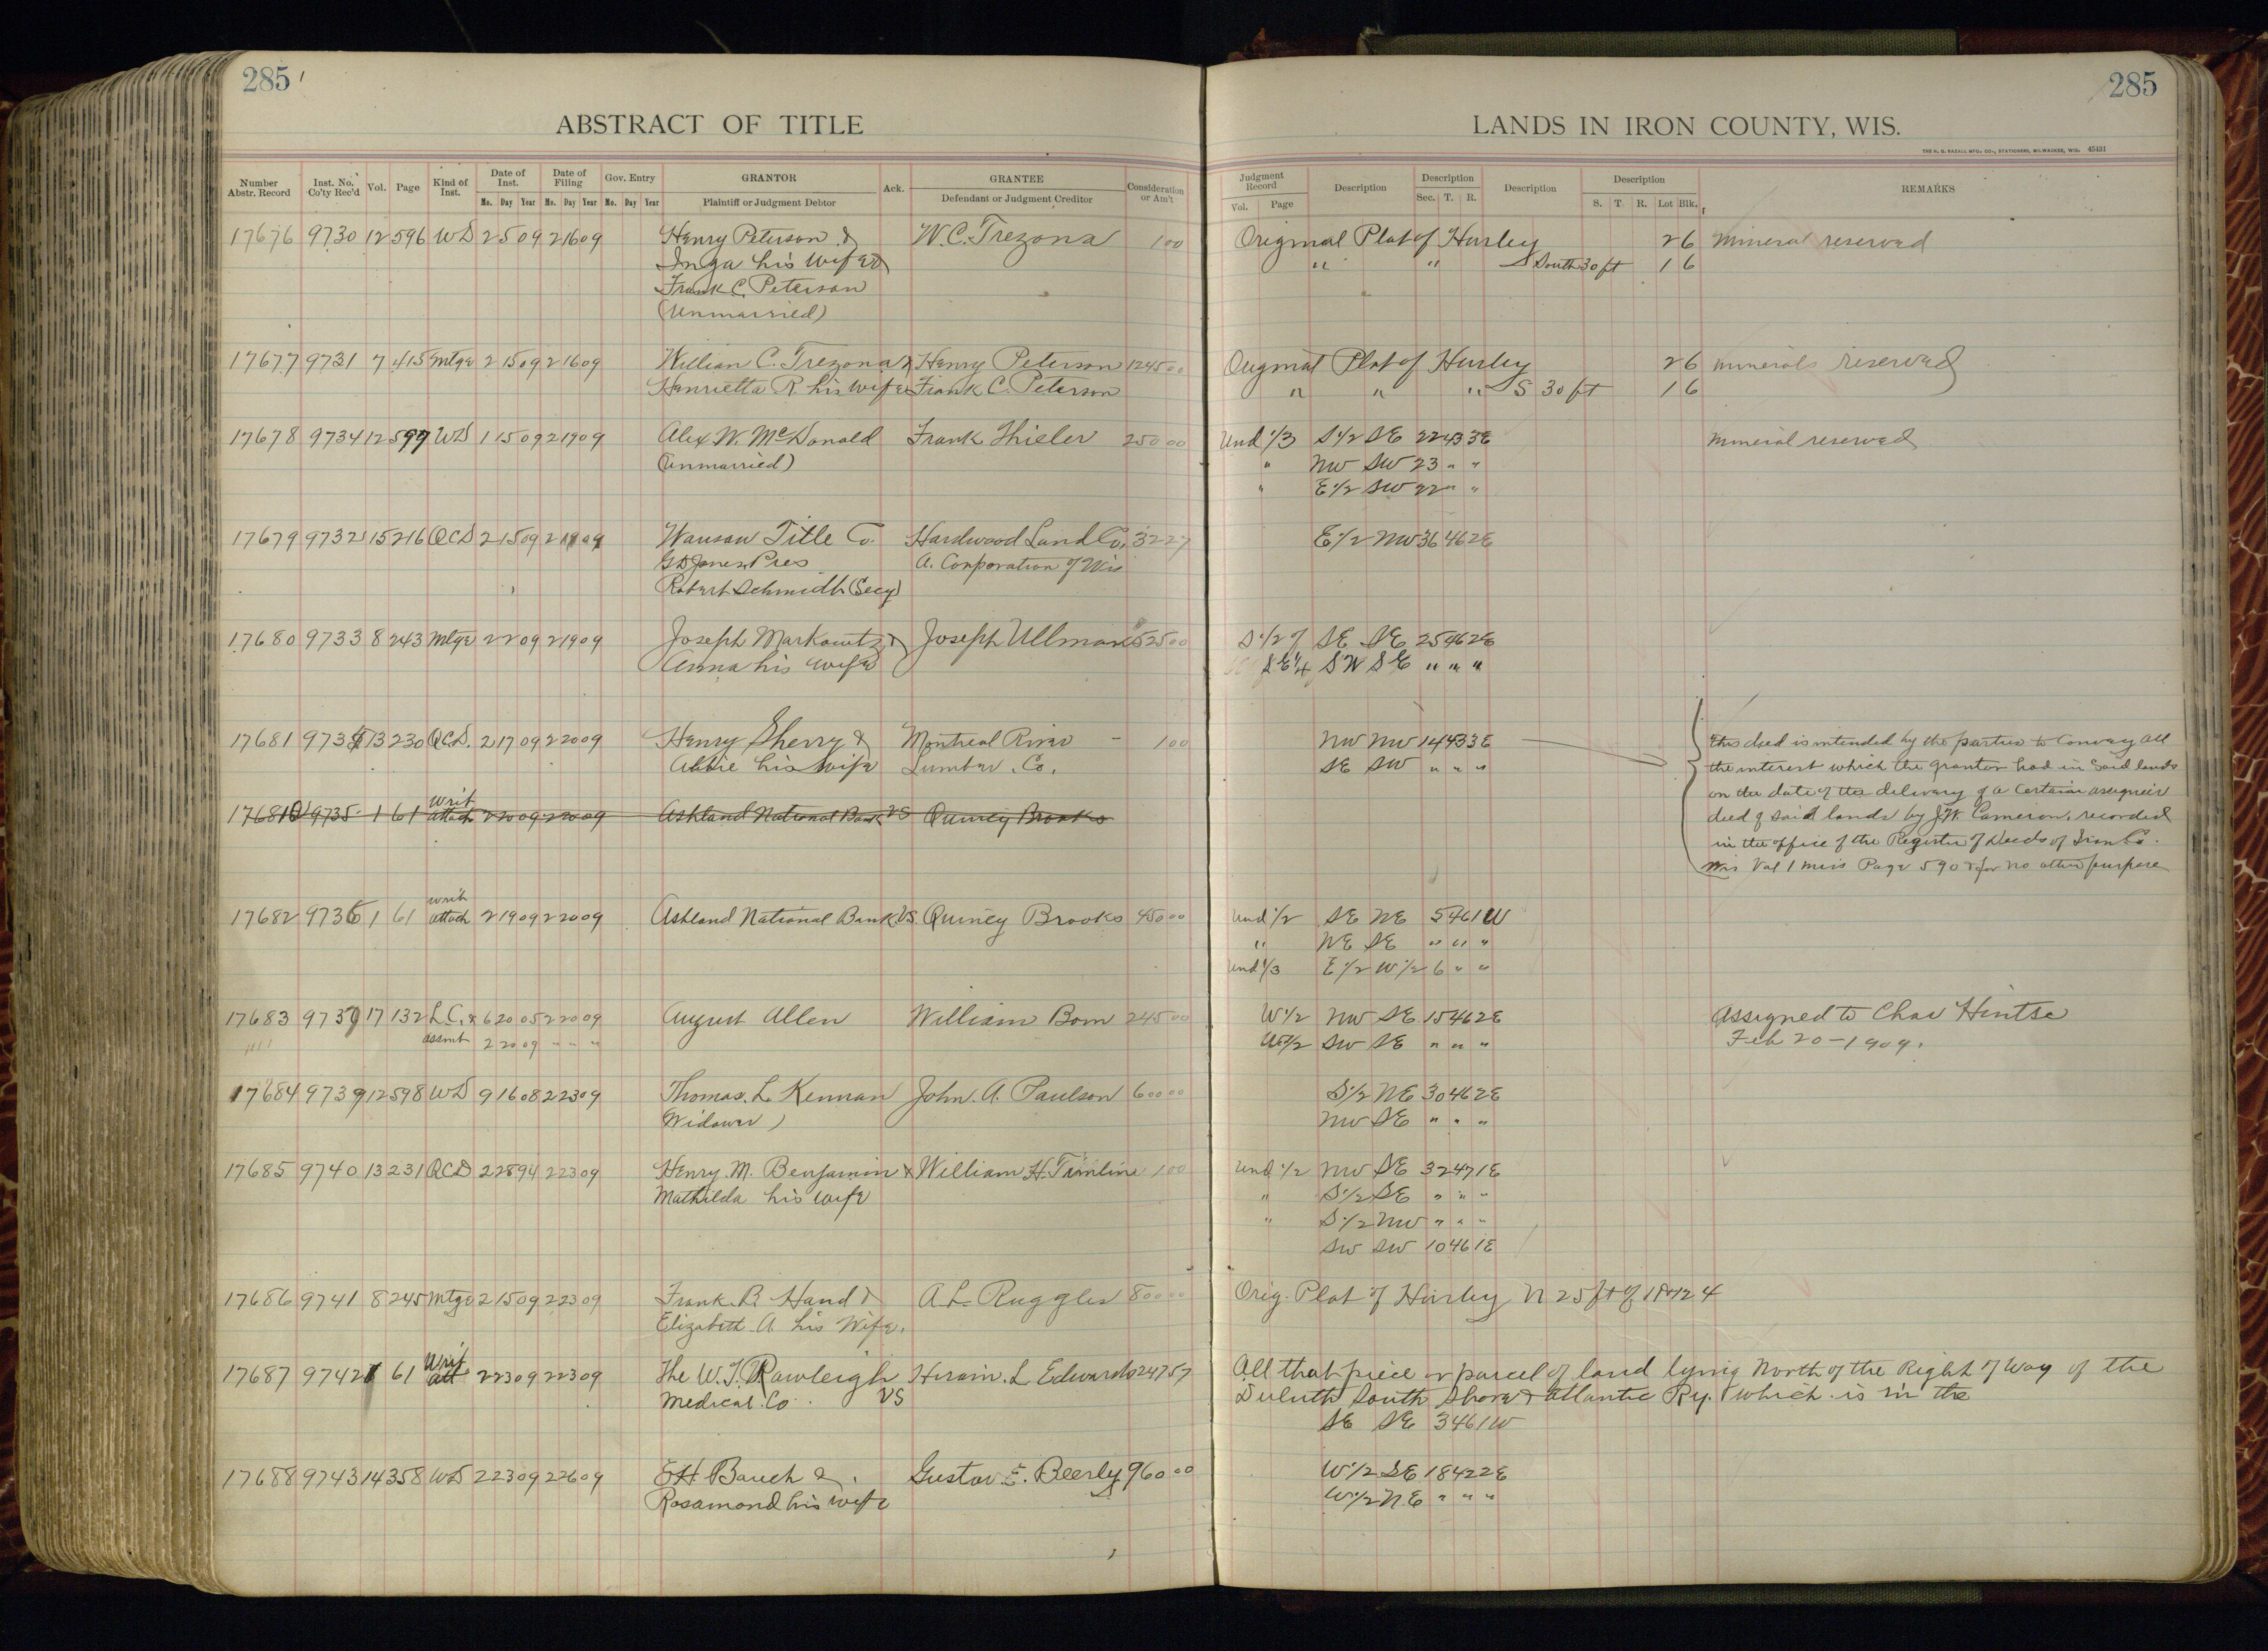 285
285
ABSTRACT OF TITLE
LANDS IN IRON COUNTY, WIS.
THE H. G. RAZALL MFG. CO., STATIONERS, MILWAUKEE, WIS. 45431
Number Abstr. Record Inst. No. Co'ty Rec'd Vol. Page Kind of Inst. Date of Inst. Mo. Day Year Date of Filing Mo. Day Year Gov. Entry Mo. Day Year GRANTOR Plaintiff or Judgment Debtor Ack. GRANTEE Defendant or Judgment Creditor Consideration or Am't
Judgment Record Vol. Page Description Description Sec. T. R. Description Description S. T. R. Lot Blk. REMARKS
17676 9730 12 596 WD 2 5 09 2 16 09 Henry Peterson & W.C. Trezona 1 00 Original Plat of Hurley 2 6 Mineral reserved
Inga his wife & " " South 30 ft 1 6
Frank C. Peterson
(Unmarried)
17677 9731 7 415 Mtge 2 15 09 2 16 09 William C. Trezona & Henry Peterson 1245 00 Original Plat of Hurley 2 6 minerals reserved
Henrietta R. his wife Frank C. Peterson " " " S 30 ft 1 6
17678 9734 12 597 WD 1 15 09 2 19 09 Alex W. McDonald Frank Thieler 250 00 Und 1/3 S1/2 SE 22 43 3E Mineral reserved
(Unmarried) " NW SW 23 " "
" E1/2 SW 22 " "
17679 9732 15 216 QCD 2 15 09 2 19 09 Wausau Title Co. Hardwood Land Co. 32 27 E1/2 NW 36 46 2E
G D Jones Pres A. Corporation of Wis
Robert Schmidt (Secy)
17680 9733 8 243 Mtge 2 2 09 2 19 09 Joseph Markowitz & Joseph Ullman 525 00 S1/2 of SE SE 25 46 2E
Anna his wife SE1/4 SW SE " " "
17681 973 13 230 QCD. 2 17 09 2 20 09 Henry Sherry & Montreal River - 1 00 NW NW 14 43 3E This deed is intended by the parties to Convey all
Abbie his wife Lumber Co. SE SW " " " the interest which the grantor had in said lands
on the date of the delivery of a Certain assignees
17681 9735 1 61 Writ attach 2 20 09 2 20 09 Ashland National Bank VS Quincy Brooks deed of said lands by J.W. Cameron, recorded
in the office of the Register of Deeds of Iron Co.
Wis Vol 1 Mis Page 590 & for no other purpose
17682 9736 1 61 Writ attach 2 19 09 2 20 09 Ashland National Bank VS. Quincy Brooks 450 00 Und 1/2 SE NE 5 46 1W
" NE SE " " "
Und 1/3 E1/2 W1/2 6 " "
17683 9737 17 132 L.C. & 6 20 05 2 20 09 August Allen William Born 245 00 W1/2 NW SE 15 46 2E Assigned to Chas Hintse
assmt 2 20 09 " " " W1/2 SW SE " " " Feb 20-1909.
17684 9739 12 598 WD 9 16 08 2 23 09 Thomas. L. Kennan John. A. Paulson 600 00 S1/2 NE 30 46 2E
Widower) NW SE " " "
17685 9740 13 231 QCD 2 28 94 2 23 09 Henry. M. Benjamin & William H. Timlin 1 00 Und 1/2 NW SE 32 47 1E
Mathilda his wife " S1/2 SE " " "
" S1/2 NW " " "
SW SW 10 46 1E
17686 9741 8 245 Mtge 2 15 09 2 23 09 Frank. B. Hand & A. L. Ruggles 800 00 Orig. Plat of Hurley N 25 ft of 18 24
Elizabeth A. his Wife.
17687 9742 1 61 Writ att 2 23 09 2 23 09 The W. T. Rawleigh Hiram. L Edwards 247 57 All that piece or parcel of land lying North of the Right of Way of the
Medical Co. VS Duluth South Shore & Atlantic Ry. which is in the
SE SE 3 46 1W
17688 9743 14 358 WD 2 23 09 2 26 09 E H Bauch & Gustav E. Beerly 960 00 W1/2 SE 18 42 2E
Rosamond his wife W1/2 NE " " "